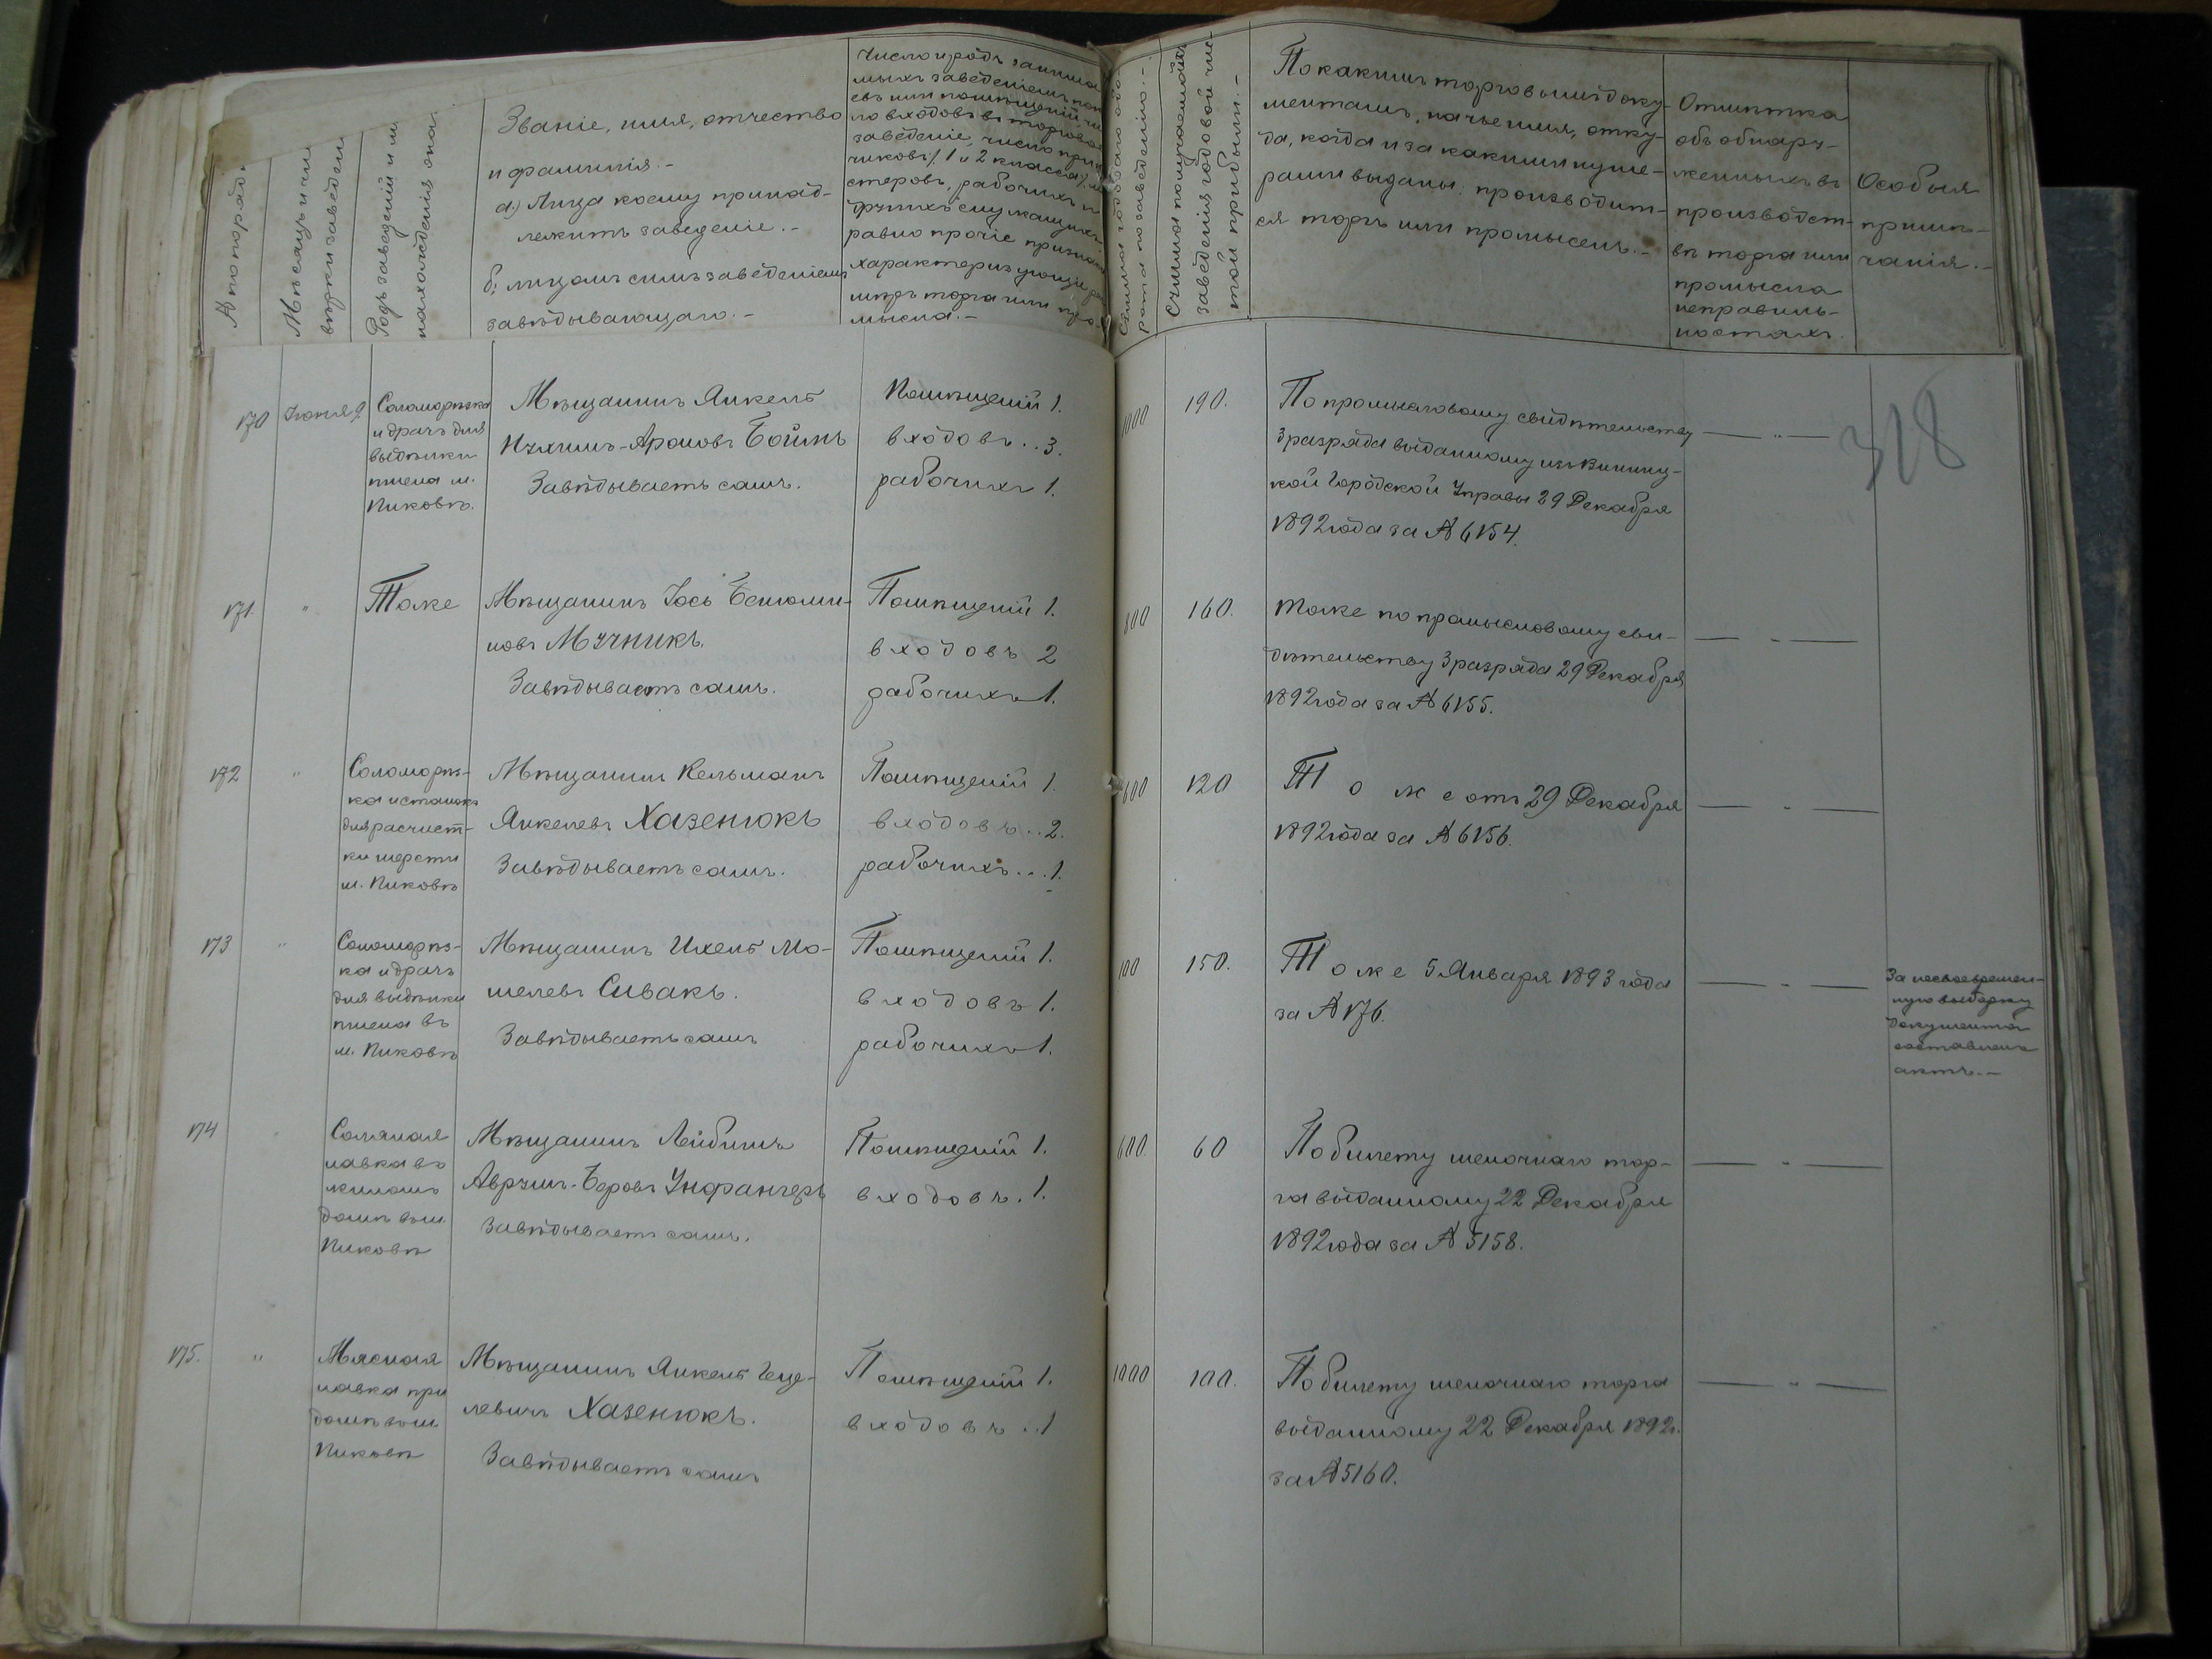 № по поряд
Мѣсяцъ и чи
вѣрки заведен
Родъ заведеній и м
нахожденія онаг
Званіе, имя, отчество
и фамилія.-
а) Лица коему принад-
лежитъ заведеніе.-
б; лицомъ симъ заведеніемъ
завѣдывающаго.-
Число и родъ занима
мыхъ заведеніемъ пок
евъ или помѣщеній чи
ло входовъ въ торговое
заведеніе, число прика
чиковъ (1 и 2 класса), ма
стеровъ, рабочихъ и
другихъ служащихъ
равно прочіе признаки
характеризующіе раз
мѣръ торга или про-
мысла.-
Сумма годоваго обо-
рота по заведенію.-
Сумма получаемой отъ
заведенія годовой чис-
той прибыли.-
По какимъ торговымъ доку-
ментамъ, на чье имя, отку-
да, когда и за какими нуме-
рами выданы: производит-
ся торгъ или промыселъ.-
Отмѣтка
объ обнару-
женныхъ въ
производст-
вѣ торга или
промысла
неправиль-
ностяхъ.
Особыя
примѣ-
чанія.-
318
170
Іюня 9
Соломорѣзка
и драчъ для
выдѣлки
пшена м.
Пиковѣ.
Мѣщанинъ Янкель
Нухимъ-Ароновъ Боймъ
Завѣдываетъ самъ.
Помѣщеній 1.
входовъ..3.
рабочихъ 1.
1000
190.
По промысловому свидѣтельству
3 разряда выданному изъ Винниц-
кой Городской Управы 29 Декабря
1892 года за № 6154.
— " —
171.
"
Тоже
Мѣщанинъ Іось Беніоми-
новъ Мучникъ.
Завѣдываетъ самъ.
Помѣщеній 1.
входовъ 2
рабочихъ 1.
800
160.
Тоже по промысловому сви-
дѣтельству 3 разряда 29 Декабря
1892 года за № 6155.
— " —
172
"
Соломорѣз-
ка и станокъ
для расчист-
ки шерсти
м. Пиковѣ
Мѣщанинъ Кельманъ
Янкелевъ Хазенюкъ
Завѣдываетъ самъ.
Помѣщеній 1.
входовъ..2.
рабочихъ...1.
600
120
Тоже отъ 29 Декабря
1892 года за № 6156.
— " —
173
"
Соломорѣз-
ка и драчъ
для выдѣлки
пшена въ
м. Пиковѣ
Мѣщанинъ Ихель Мо-
шелевъ Сивакъ.
Завѣдываетъ самъ
Помѣщеній 1.
входовъ 1.
рабочихъ 1.
150.
Тоже 5 Января 1893 года
за № 176.
— " —
За несвоевремен-
ную выборку
документа
составленъ
актъ.-
174
Соляная
лавка въ
жиломъ
домѣ въ м.
Пиковѣ
Мѣщанинъ Лейбишъ
Аврумъ-Беровъ Унфангеръ
Завѣдываетъ самъ.
Помѣщеній 1.
входовъ. 1.
600
60
По билету мелочнаго тор-
га выданному 22 Декабря
1892 года за № 5158.
— " —
175.
"
Мясная
лавка при
домѣ въ м
Пиковѣ
Мѣщанинъ Янкель Геце-
левичъ Хазенюкъ.
Завѣдываетъ самъ
Помѣщеній 1.
входовъ..1
1000
100.
По билету мелочнаго торга
выданному 22 Декабря 1892 г.
за № 5160.
— " —